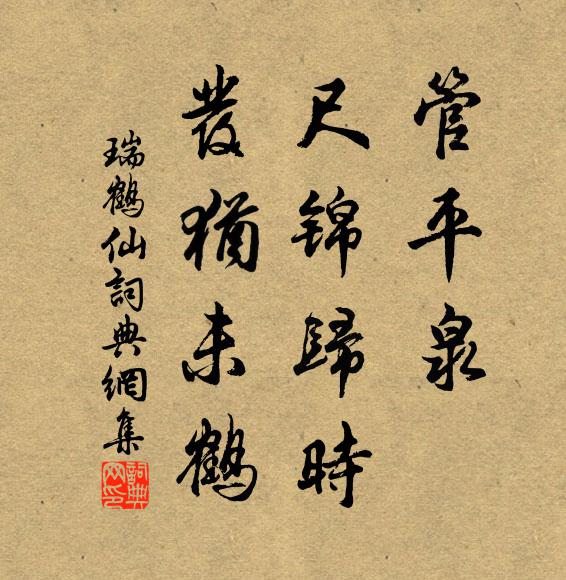 管平泉
尺錦歸時
發猶未鶴
瑞鶴仙詞典網集
詞典
网印